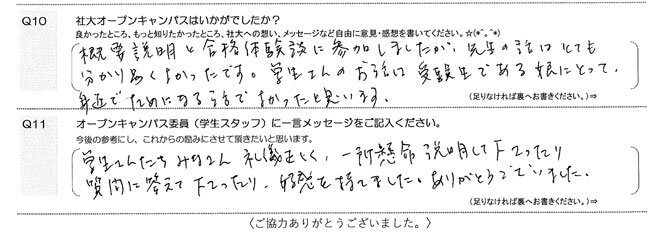 Q10 社大オープンキャンパスはいかがでしたか？
良かったところ、もっと知りたかったところ、社大への想い、メッセージなど自由に意見・感想を書いてください。☆(*^。^*)
概要説明と合格体験談に参加しましたが、先生の話はとても
分かり易くよかったです。学生さんのお話は受験生である娘にとって、
身近でためになる話でよかったと思います。
(足りなければ裏へお書きください。)⇒
Q11 オープンキャンパス委員（学生スタッフ）に一言メッセージをご記入ください。
今後の参考にし、これからの励みにさせて頂きたいと思います。
学生さんたちみなさん礼儀正しく、一所懸命説明して下さったり
質問に答えて下さったり、好感を持てました。ありがとうございました。
(足りなければ裏へお書きください。)⇒
〈ご協力ありがとうございました。〉